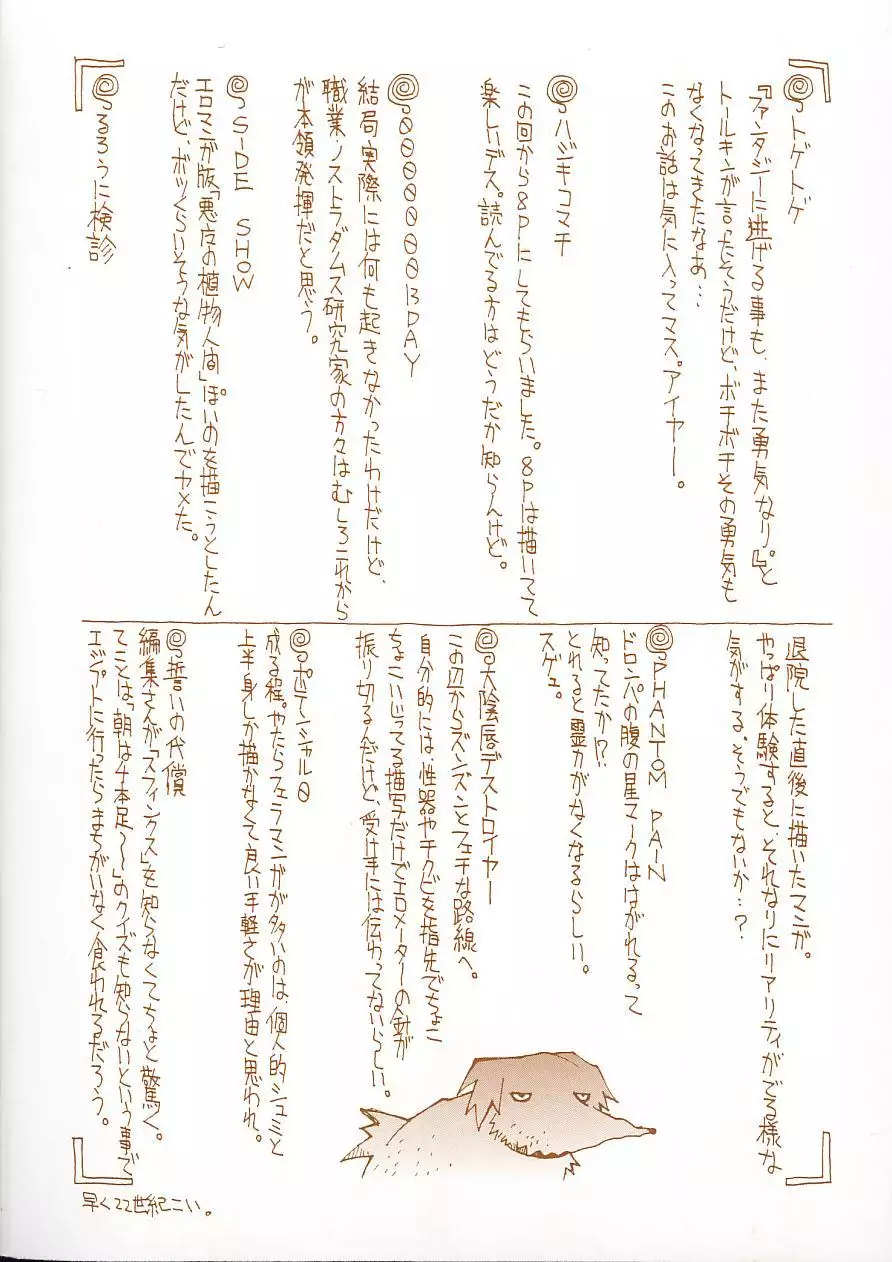 トゲトゲ
『ファンタジーに逃げる事も、また勇気なり。』と
トールキンが言ったそうだけど、ボチボチその勇気も
なくなってきたなあ…
このお話は気に入ってマス。アイヤー。
ハジキコマチ
この回から8Pにしてもらいました。8Pは描いてて
楽しいデス。読んでる方はどうだか知らんけど。
00000000B DAY
結局、実際には何も起きなかったわけだけど、
職業・ノストラダムス研究家の方々はむしろこれから
が本領発揮だと思う。
SIDE SHOW
エロマンガ版「悪友の植物人間」ぽいのを描こうとしたん
だけど、ボツくらいそうな気がしたんでヤメた。
るろうに検診
退院した直後に描いたマンガ。
やっぱり体験すると、それなりにリアリティがでる様な
気がする。そうでもないか…?
PHANTOM PAIN
ドロンパの腹の星マークははがれるって
知ってたか!?
とれると霊力がなくなるらしい。
スゲェ。
大陰唇デストロイヤー
この辺からズンズンとフェチな路線へ。
自分的には、性器やチクビを指先でちょこ
ちょこいじってる描写だけでエロメーターの針が
振り切るんだけど、受け手には伝わってないらしい。
ポテンシャル0
成る程。やたらフェラマンガが多いのは、個人的シュミと
上半身しか描かなくて良い手軽さが理由と思われ。
誓いの代償
編集さんが「スフィンクス」を知らなくてちょと驚く。
てことは、「朝は4本足〜」のクイズも知らないという事で
エジプトに行ったらまちがいなく食われるだろう。
早く22世紀こい。